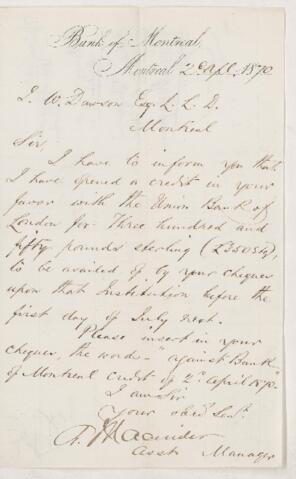 Bank of Montreal,
Montreal 2d Apl 1870
J. W. Dawson Esqr L.L.D.
Montreal
Sir,
I have to inform you that
I have opened a credit in your
favor with the Union Bank of
London for Three hundred and
fifty pounds sterling (£350 Stg),
to be availed of by your cheques
upon that Institution before the
first day of July next.
Please insert in your
cheques, the words "against Bank
of Montreal credit of 2d April 1870."
I am Sir
Your obedt Servt
Asst Manager